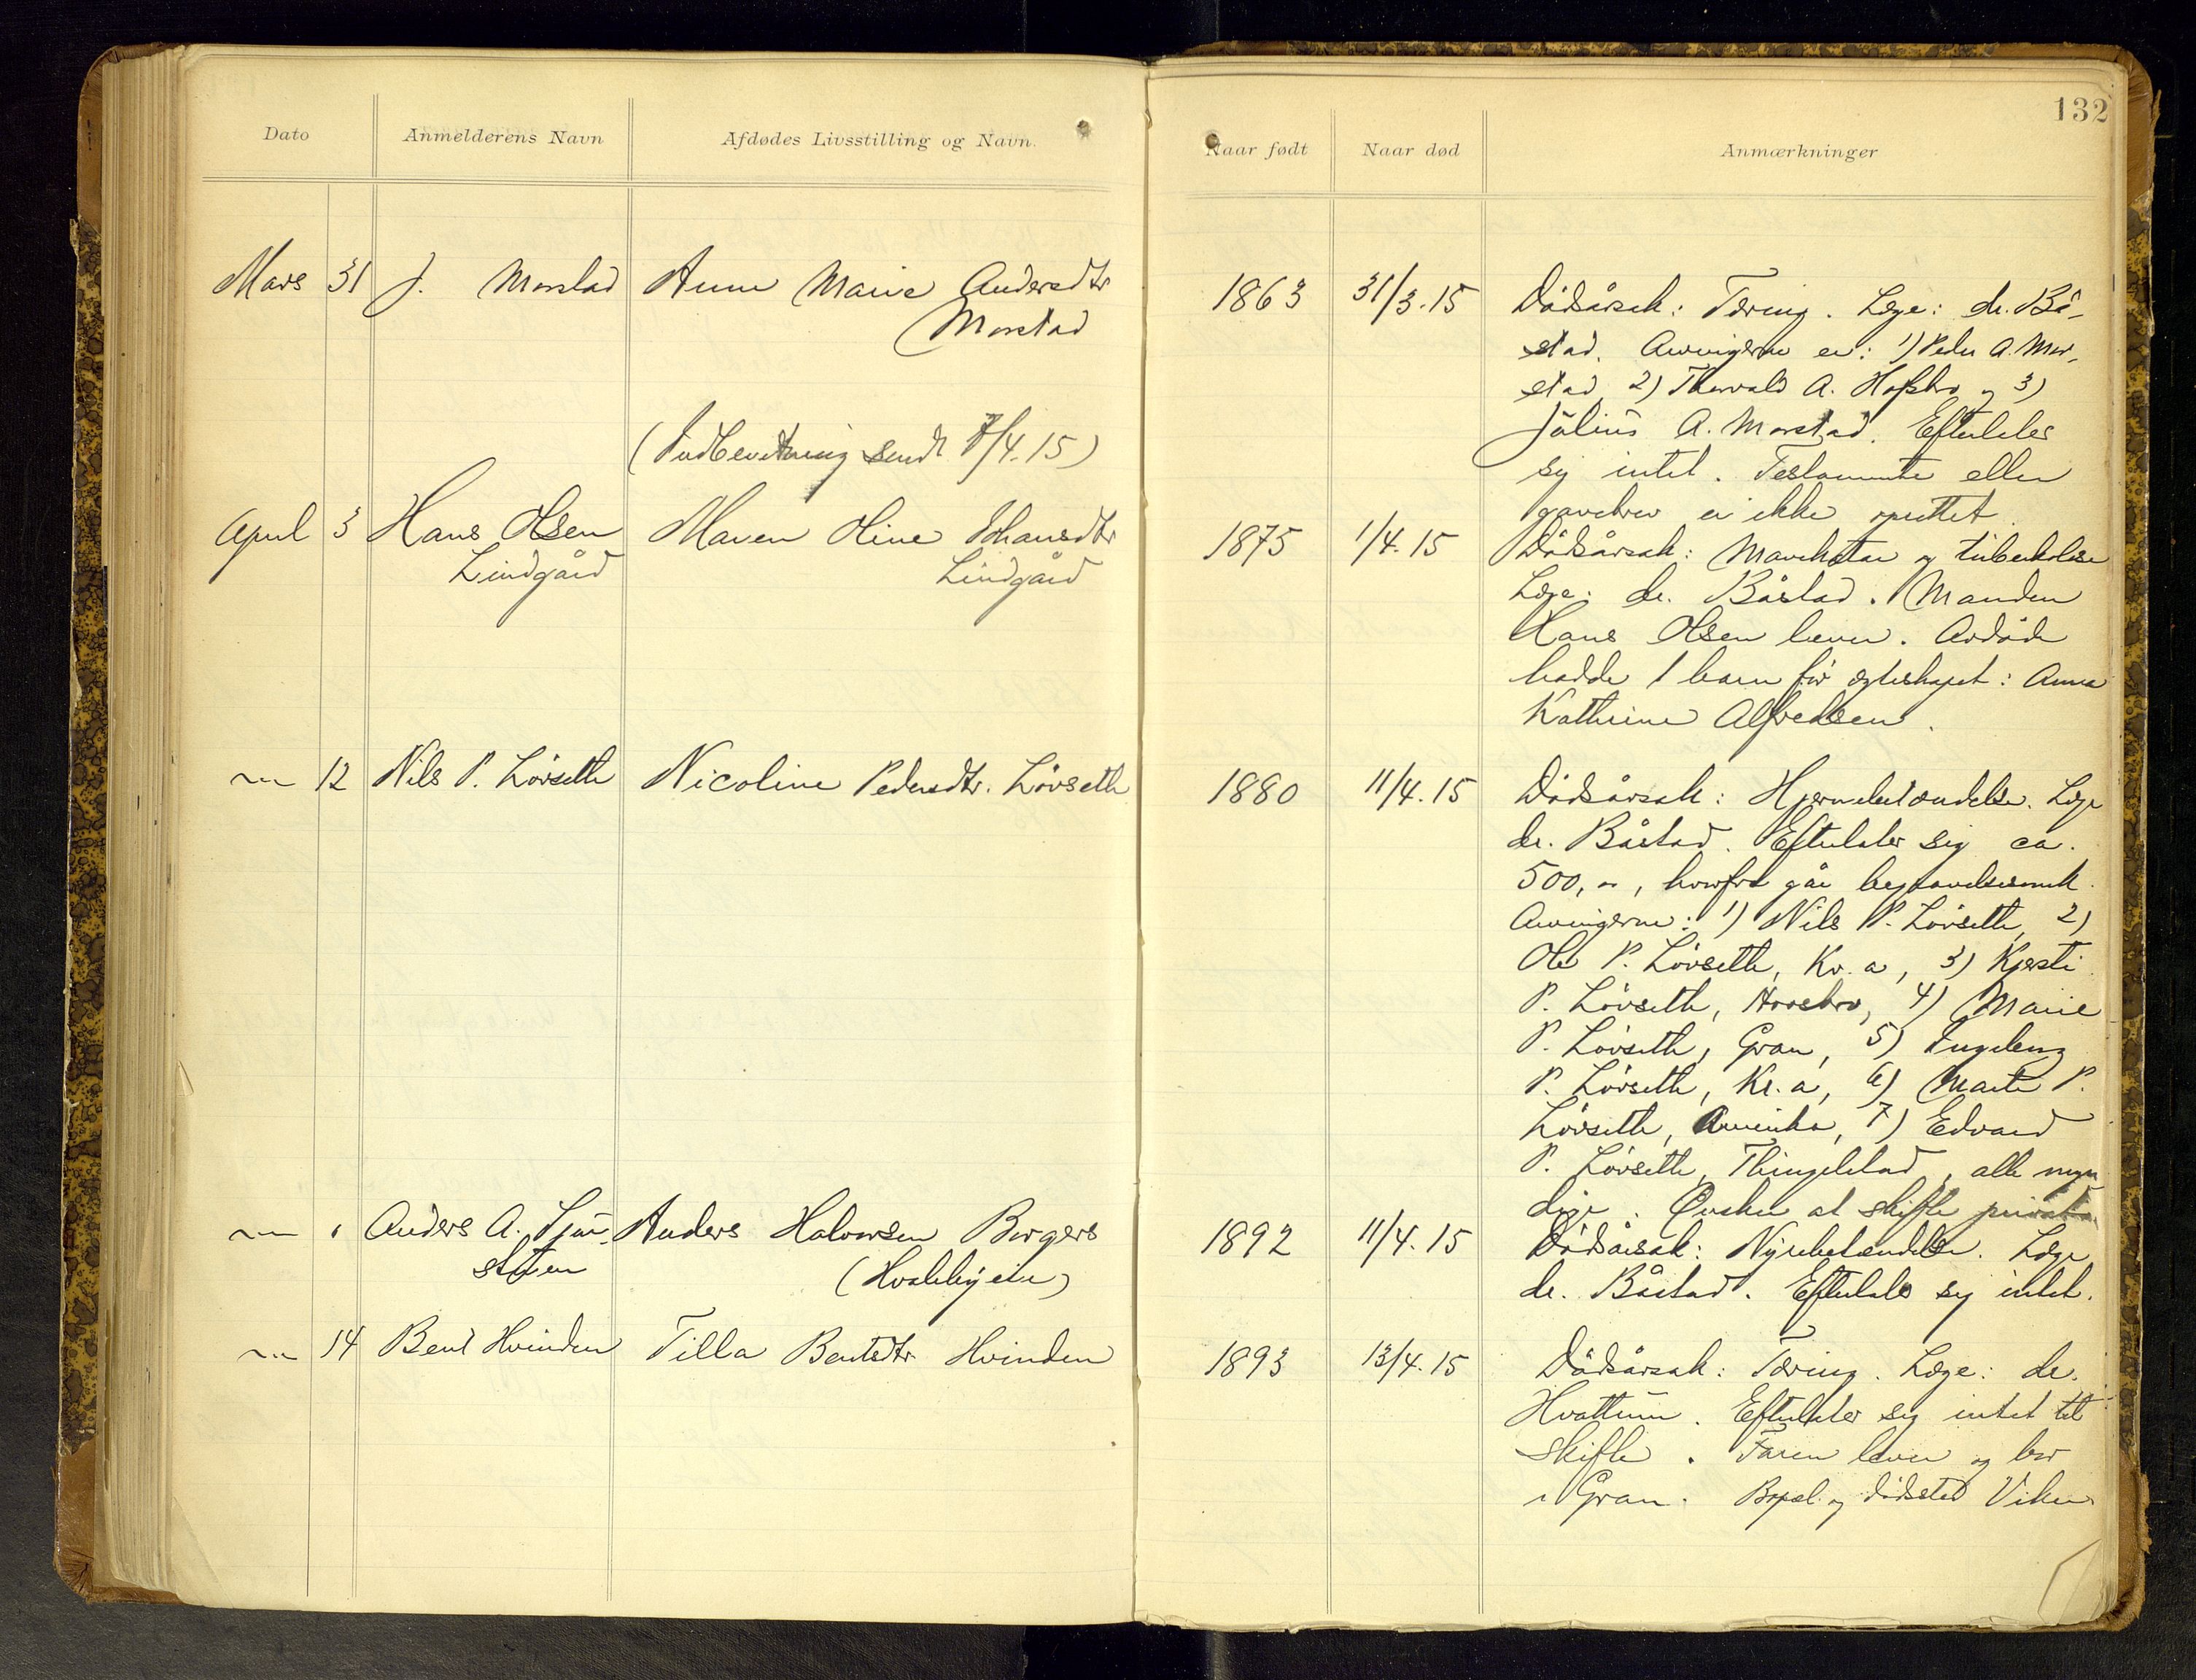 132
Dato
Anmelderens Navn
Afdødes Livsstilling og Navn.
Naar født
Naar død
Anmærkninger
Mars 31 J. Morstad Anne Marie Andersdtr
Morstad
1863 31/3.15 Dödsårsak: Tæring. Læge: dr. Bå-
stad. Arvingerne er: 1) Peder A. Mor-
stad 2) Thorvald A. Hofsbro og 3)
Julius A. Morstad. Efterlater
sig intet. Testamente eller
gavebrev er ikke oprettet.
(Indberetning sendt 7/4.15)
April 3 Hans Olsen Maren Oline Johansdtr
Lindgård Lindgård
1875 1/4.15 Dödsårsak: Mavekatar og tuberkulose
Læge: dr. Båstad. Manden
Hans Olsen lever. Avdöde
hadde 1 barn för egteskapet: Anna
Kathrine Alfredsen.
-"- 12 Nils P. Lövseth Nicoline Pedersdtr. Lövseth
1880 11/4.15 Dödsårsak: Hjernebetændelse. Læge
dr. Båstad. Efterlater sig ca.
500,-, hvorfra går begravelsesomk.
Arvingerne: 1) Nils P. Lövseth, 2)
Ole P. Lövseth, Kr.a, 3) Kjersti
P. Lövseth, 4) Marie
P. Lövseth, Gran, 5) Ingeborg
P. Lövseth, Kr.a, 6) Marte P.
Lövseth, Amerika, 7) Edvard
P. Lövseth, Thingelstad, alle myn-
dige. Önsker at skifte privat.
-"- " Anders A. Anders Halvorsen Borgers
(Hvalebyeie)
1892 11/4.15 Dödsårsak: Nyrebetændelse. Læge
dr. Båstad. Efterlater sig intet.
-"- 14 Bent Hvinden Tilla Bentsdtr Hvinden
1893 13/4.15 Dödsårsak: Tæring. Læge: dr.
Hvattum. Efterlater sig intet til
skifte. Faren lever og bor
i Gran. Bopæl og dödssted Viken